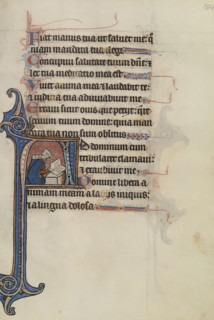 Fiat manus tua ut saluet me: q̄
niam mandata tua elegi
Concupiui salutare tuum dn̄e:
et lex tua meditatio mea est
Uiuet anima mea et laudabit te:
et iudicia tua adiuuabunt me
Erraui sicut ouis que periit: que
seruum tuum domine: quia man
data tua non sum oblitus
Ad dominum cum
tribularer clamaui:
et exaudiuit me
Domine libera a
nimam meam a labiis iniquis:
et a lingua dolosa